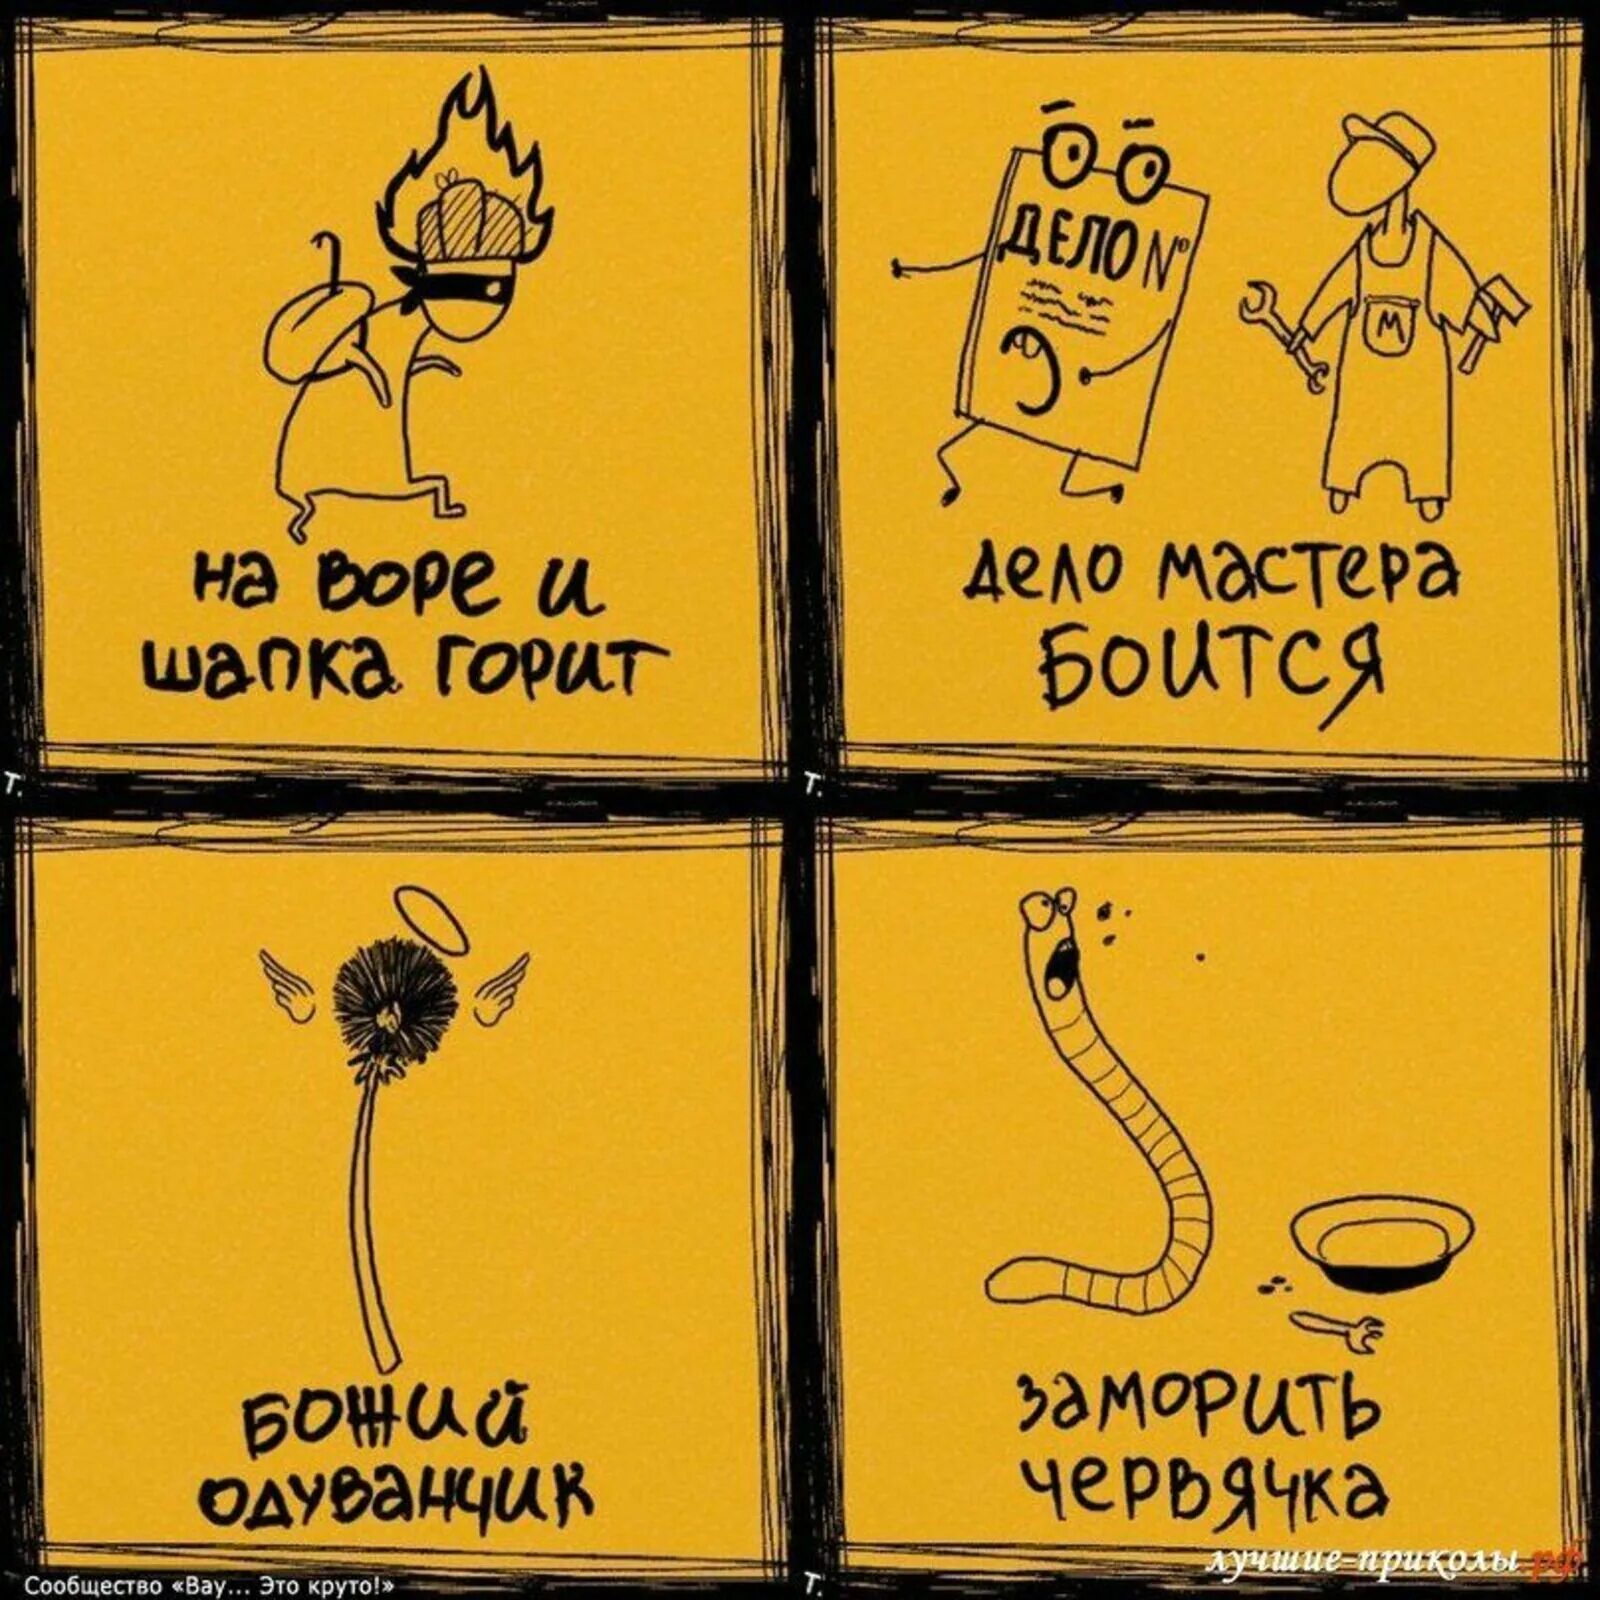 на воре и
шапка горит
ДЕЛО №
М
дело мастера
боится
Т.
Т.
божий
одуванчик
заморить
червячка
лучшие-приколы.рф
Сообщество «Вау... Это круто!»
Т.